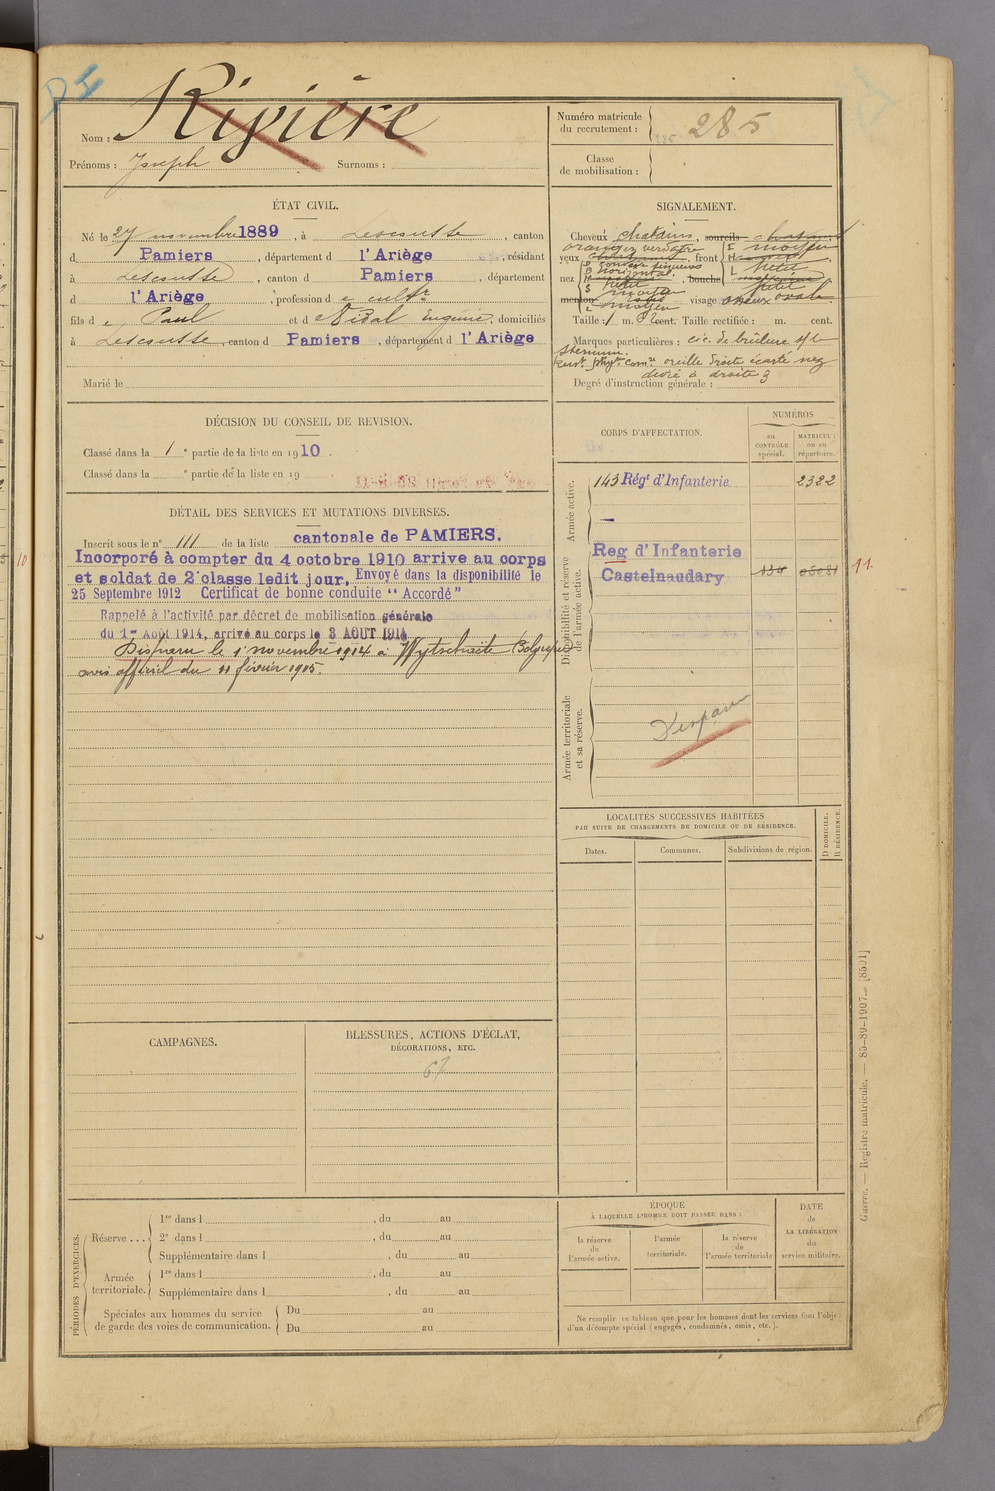 Nom : Ripière
Prénoms : Joseph Surnoms :
Numéro matricule du recrutement : 285
Classe de mobilisation :
ÉTAT CIVIL.
Né le 27 novembre 1889, à Lescousse, canton
d Pamiers, département d l'Ariège, résidant
à Lescousse, canton d Pamiers, département
d l'Ariège, profession d e cultr
fils d e Paul et d e Vidal Eugénie, domiciliés
à Lescousse, canton d Pamiers, département d l'Ariège
Marié le
SIGNALEMENT.
Cheveux chatains, sourcils chatains
yeux orangez verdâtre, front moyen
nez, bouche petit
menton visage ovale
Taille : 1 m. cent. Taille rectifiée : m. cent.
Marques particulières : cic. de brûlure s/le
sternum.
oreille droite écarté nez
dévié à droite
Degré d'instruction générale : 3
DÉCISION DU CONSEIL DE REVISION.
Classé dans la 1 e partie de la liste en 1910.
Classé dans la e partie de la liste en 19
DÉTAIL DES SERVICES ET MUTATIONS DIVERSES.
Inscrit sous le n° 111 de la liste cantonale de PAMIERS.
Incorporé à compter du 4 octobre 1910 arrive au corps
et soldat de 2e classe ledit jour, Envoyé dans la disponibilité le
25 Septembre 1912 Certificat de bonne conduite “ Accordé ”
Rappelé à l'activité par décret de mobilisation générale
du 1er Août 1914, arrivé au corps le 3 AOUT 1914
Disparu le 1 novembre 1914 à Wytschaëte Belgique
avis officiel du 11 février 1915.
CORPS D'AFFECTATION.
NUMÉROS
au CONTRÔLE spécial.
MATRICULE ou au répertoire.
Armée active.
143 Régt d'Infanterie 2322
Disponibilité et réserve de l'armée active.
Reg d'Infanterie
Castelnaudary
11
10
Armée territoriale et sa réserve.
Disparu
LOCALITÉS SUCCESSIVES HABITÉES
PAR SUITE DE CHANGEMENTS DE DOMICILE OU DE RÉSIDENCE.
Dates. Communes. Subdivisions de région. D DOMICILE. R RÉSIDENCE.
CAMPAGNES.
BLESSURES, ACTIONS D'ÉCLAT,
DÉCORATIONS, ETC.
PÉRIODES D'EXERCICES.
Réserve ... 1re dans l , du au
2e dans l , du au
Supplémentaire dans l , du au
Armée territoriale. 1re dans l , du au
Supplémentaire dans l , du au
Spéciales aux hommes du service Du au
de garde des voies de communication. Du au
ÉPOQUE
À LAQUELLE L'HOMME DOIT PASSER DANS :
la réserve de l'armée active.
l'armée territoriale.
la réserve de l'armée territoriale
DATE de LA LIBÉRATION du service militaire.
Ne remplir ce tableau que pour les hommes dont les services font l'objet
d'un décompte spécial (engagés, condamnés, omis, etc.).
Guerre. — Registre matricule. — 85-89-1907. [8501]